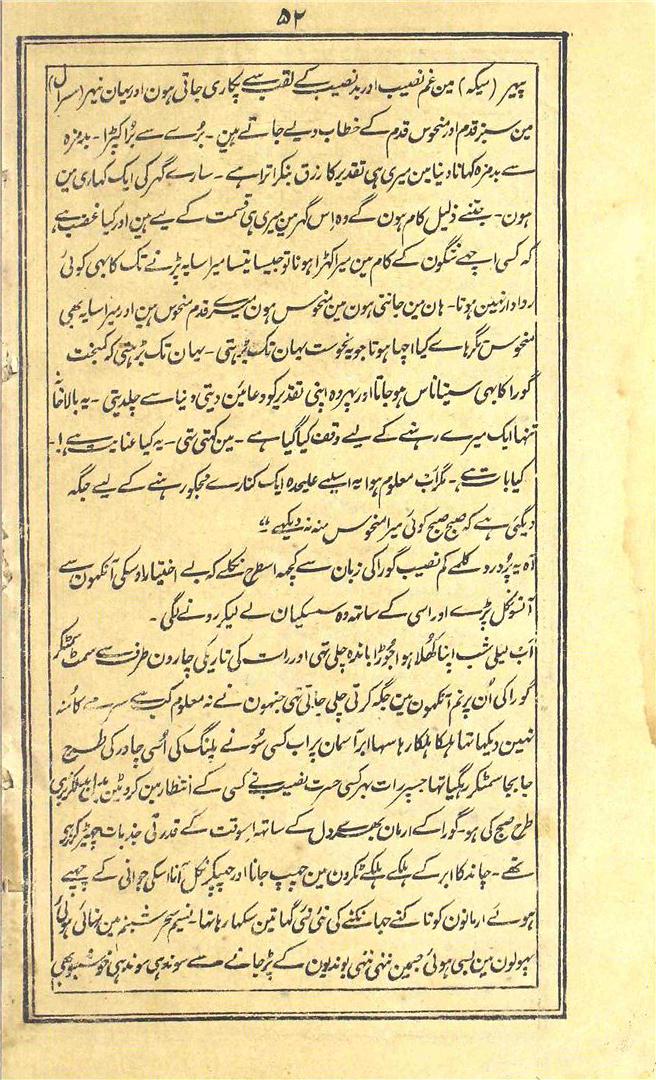 ۵۲
پیہر (میکہ) مین غم نصیب اور بدنصیب کے لقب سے پکاری جاتی ہون اور یہان نیہر (سسرال)
مین سبز قدم اور منحوس قدم کے خطاب دیے جاتے ہین۔ بُرے سے بُرا کپڑا۔ بدمزہ
سے بدمزہ کہانا دنیا مین میری ہی تقدیر کا رزق بنکر اترا ہے۔ سارے گہر کی ایک کہاری مین
ہون۔ جتنے ذلیل کام ہون گے وہ اِس گہر مین میری ہی قسمت کے لیے ہین اور کیا غضب ہے
کہ کسی اچھے شگون کے کام مین میرا کہڑا ہونا تو جیسا تیسا میرا سایہ پڑنے تک کا بہی کوئی
روادار نہین ہوتا۔ ہان مین جانتی ہون مین منحوس ہون میرے قدم منحوس ہین اور میرا سایہ بھی
منحوس مگر ہاے کیا اچہا ہوتا جو یہ نحوست یہان تک بڑہتی۔ یہان تک بڑہتی کہ کمبخت
گورا کا بہی ستیاناس ہوجاتا اور پہر وہ اپنی تقدیر کو دعائین دیتی دنیا سے چلدیتی۔ یہ بالاخانہ
تنہا ایک میرے رہنے کے لیے وقف کیا گیا ہے۔ مین کہتی تہی۔ یہ کیا عنایت ہے!۔
کیا بات ہے۔ مگر اب معلوم ہوا یہ اسلیے علیحدہ ایک کنارے مجکو رہنے کے لیے جگہ
دیگئی ہے کہ صبح صبح کوئی میرا منحوس منہ نہ دیکھے"
آہ یہ پُردرد کلمے کم نصیب گورا کی زبان سے کچہہ اسطرح نکلے کہ بے اختیار اوسکی آنکھون سے
آنسو نکل پڑے اور اسی کے ساتھ وہ سسکیان لے لیکر رونے لگی۔
اَب لیلی شب اپنا کُھلا ہوا جُوڑا باندہ چلی تہی اور رات کی تاریکی چارون طرف سے سمٹ سمٹکر
گورا کی اُن پرنم آنکھون مین جگہ کرتی چلی جاتی تہی جنہون نے نہ معلوم کب سے سرمے کا منہ
نہین دیکھا تہا ہلکا ہلکا رہا سہا ابر آسمان پر اب کسی سُونے پلنگ کی اُسی چادر کی طرح
جابجا سمٹکر رہگیا تہا جسپر رات بہر کسی حسرت نصیب نے کسی کے انتظار مین کروٹین بدل بدلکر بری
طرح صبح کی ہو۔ گورا کے ارمان بھرے دل کے ساتھ اسوقت کے قدرتی جذبات چھیڑ کر رہے
تھے۔ چاند کا ابر کے ہلکے ہلکے ٹکڑون مین چھپ جانا اور چھپکر نکل آنا اسکی جوانی کے چھپے
ہوئے ارمانون کو تاکنے جہانکنے کی نئی نئی گہاتین سکھا رہا تہا۔ نسیم سحر شبنم مین نہائی ہوئی
پہولون مین بسی ہوئی جسمین ننہی ننہی بوندیون کے پڑجانے سے سوندہی سوندہی خوشبو بھی